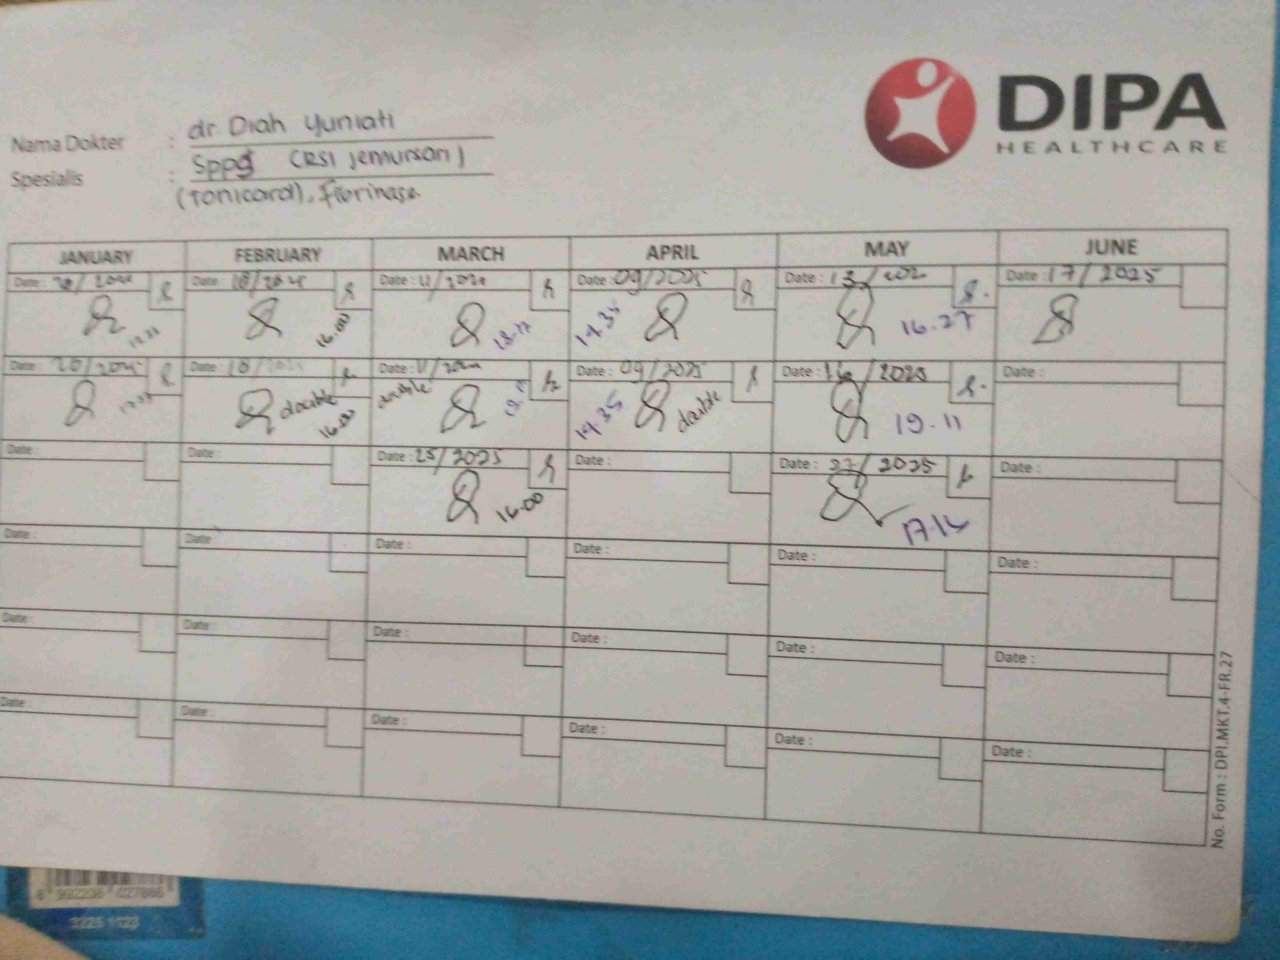 DIPA
HEALTHCARE
Nama Dokter : dr. Diah Yuniati
Spesialis : Sppd (RSI Jemursari)
(Tonicard), Fibrinase
JANUARY FEBRUARY MARCH APRIL MAY JUNE
Date : 20/ Date : 18/2025 Date : 11/ Date : 09/2025 Date : 13/202 Date : 17/2025
16.00 13.17 14.35 16.27
Date : 20/2025 Date : 18/ Date : 11/ Date : 09/2025 Date : 16/2025 Date :
double 16.00 double 14.35 double 19.11
Date : Date : Date : 25/2025 Date : Date : 27/2025 Date :
16.00 17.16
Date : Date Date : Date : Date : Date :
Date : Date : Date : Date : Date : Date :
Date : Date : Date : Date : Date : Date :
No. Form : DPI.MKT.4-FR.27
3225 1123